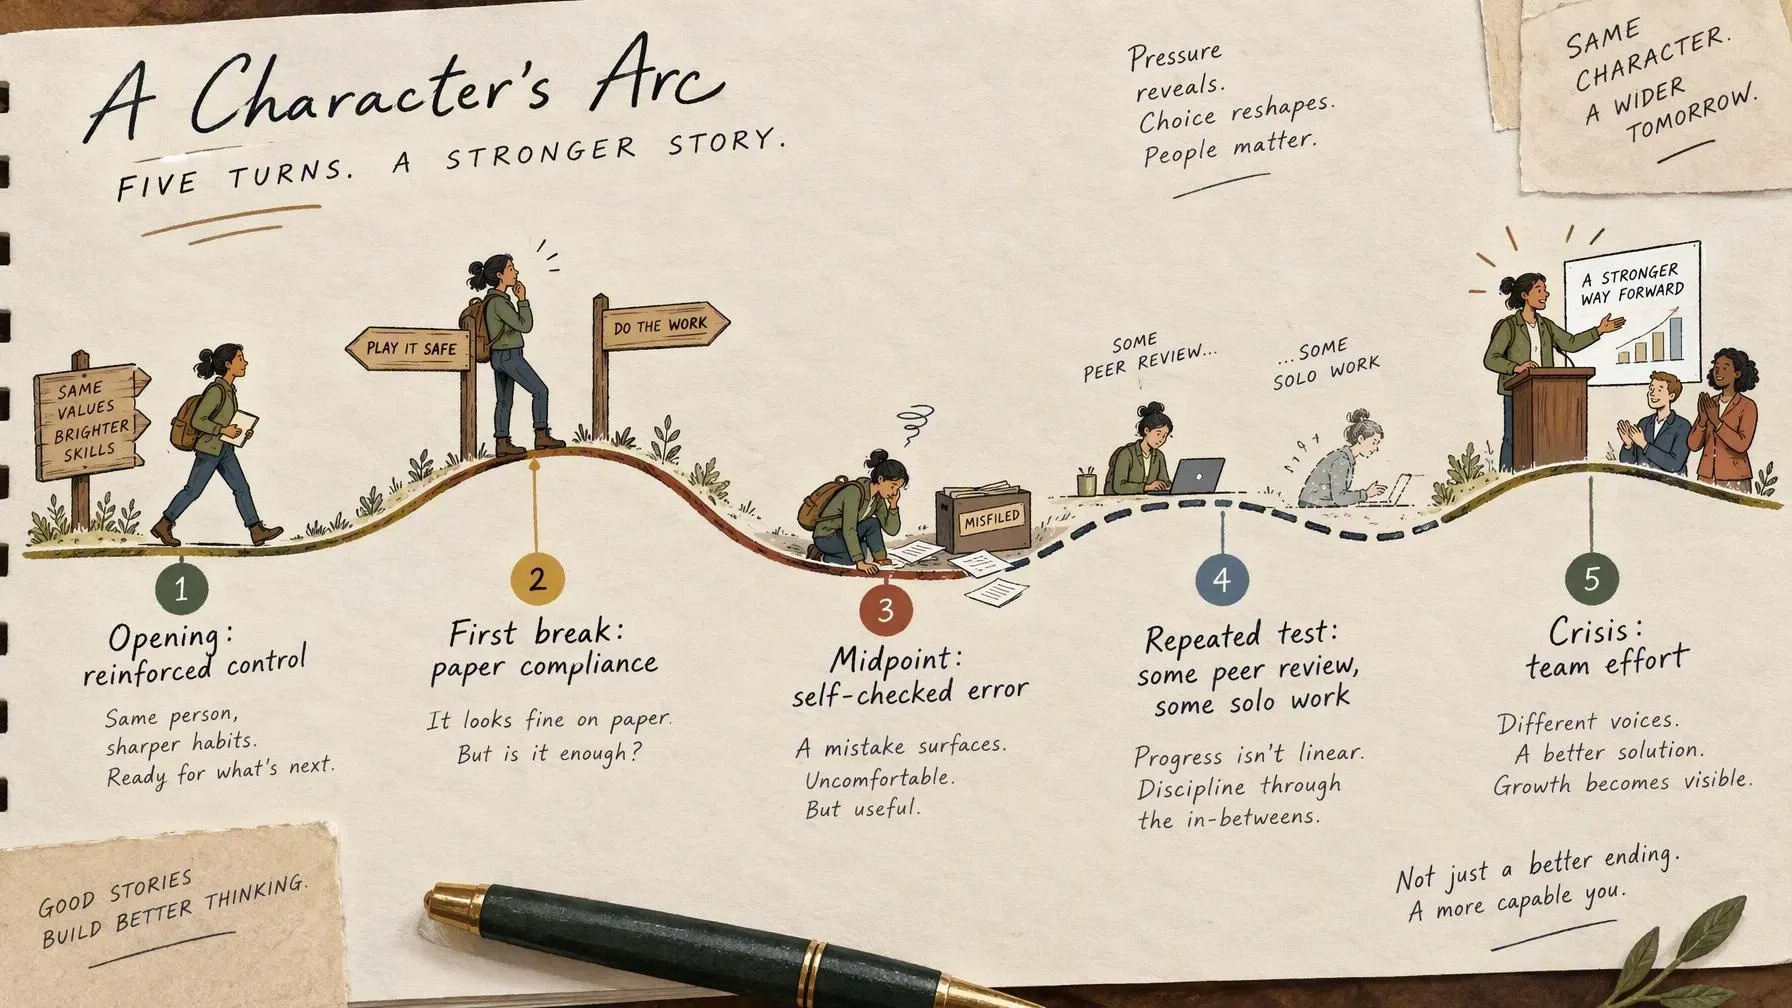 A Character's Arc
FIVE TURNS. A STRONGER STORY.
Pressure
reveals.
Choice reshapes.
People matter.
SAME
CHARACTER.
A WIDER
TOMORROW.
SAME
VALUES
BRIGHTER
SKILLS
PLAY IT SAFE
DO THE WORK
MISFILED
SOME
PEER REVIEW...
...SOME
SOLO WORK
A STRONGER
WAY FORWARD
1
Opening:
reinforced control
Same person,
sharper habits.
Ready for what's next.
2
First break:
paper compliance
It looks fine on paper.
But is it enough?
3
Midpoint:
self-checked error
A mistake surfaces.
Uncomfortable.
But useful.
4
Repeated test:
some peer review,
some solo work
Progress isn't linear.
Discipline through
the in-betweens.
5
Crisis:
team effort
Different voices.
A better solution.
Growth becomes visible.
GOOD STORIES
BUILD BETTER THINKING.
Not just a better ending.
A more capable you.